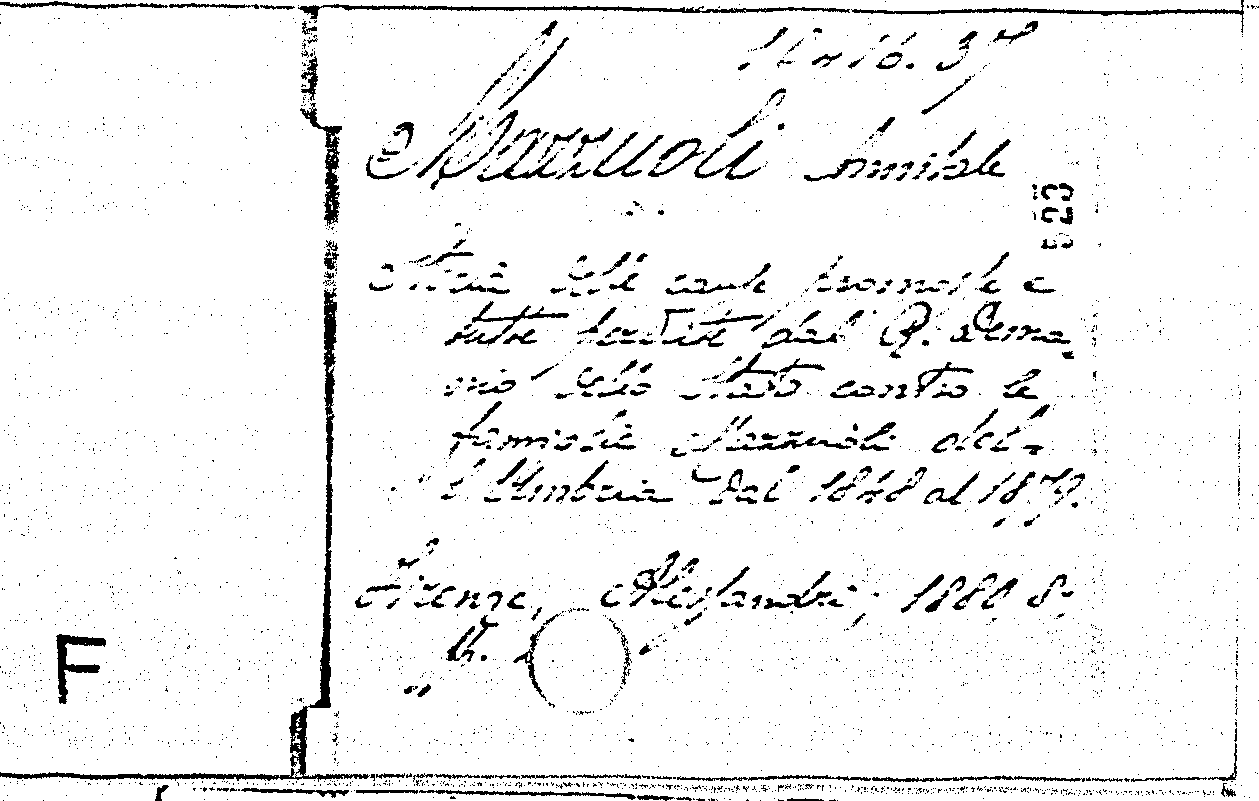 Mazzuoli Annibale
523
Storia delle cause promosse e
tutte perdute dal R. Dema-
nio dello Stato contro la
famiglia Mazzuoli del-
l'Umbria dal 1848 al 1879.
Firenze, Alessandri, 1880, 8,
F